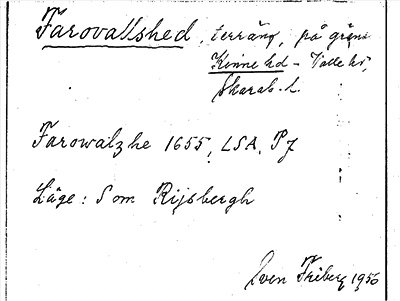 Farovallshed, terräng, på gräns
Kinne hd - Valle hd,
Skarab. l.
Farowalzhe 1655, LSA, P7
Läge: Som Rijsbergh
Sven Friberg 1950